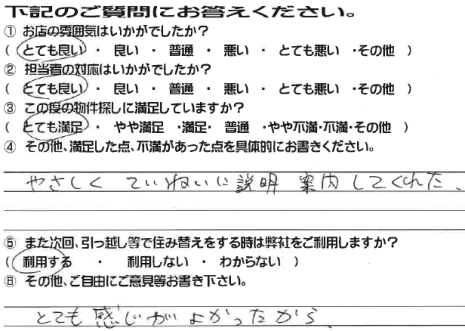 下記のご質問にお答えください。
① お店の雰囲気はいかがでしたか？
( とても良い ・ 良い ・ 普通 ・ 悪い ・ とても悪い ・その他 )
② 担当者の対応はいかがでしたか？
( とても良い ・ 良い ・ 普通 ・ 悪い ・ とても悪い ・その他 )
③ この度の物件探しに満足していますか？
( とても満足 ・ やや満足 ・満足・ 普通 ・やや不満・不満・その他 )
④ その他、満足した点、不満があった点を具体的にお書きください。
やさしく ていねいに 説明 案内 してくれた、
⑤ また次回、引っ越し等で住み替えをする時は弊社をご利用しますか？
( 利用する ・ 利用しない ・ わからない )
⑥ その他、ご自由にご意見等お書き下さい。
とても 感じが よかったから